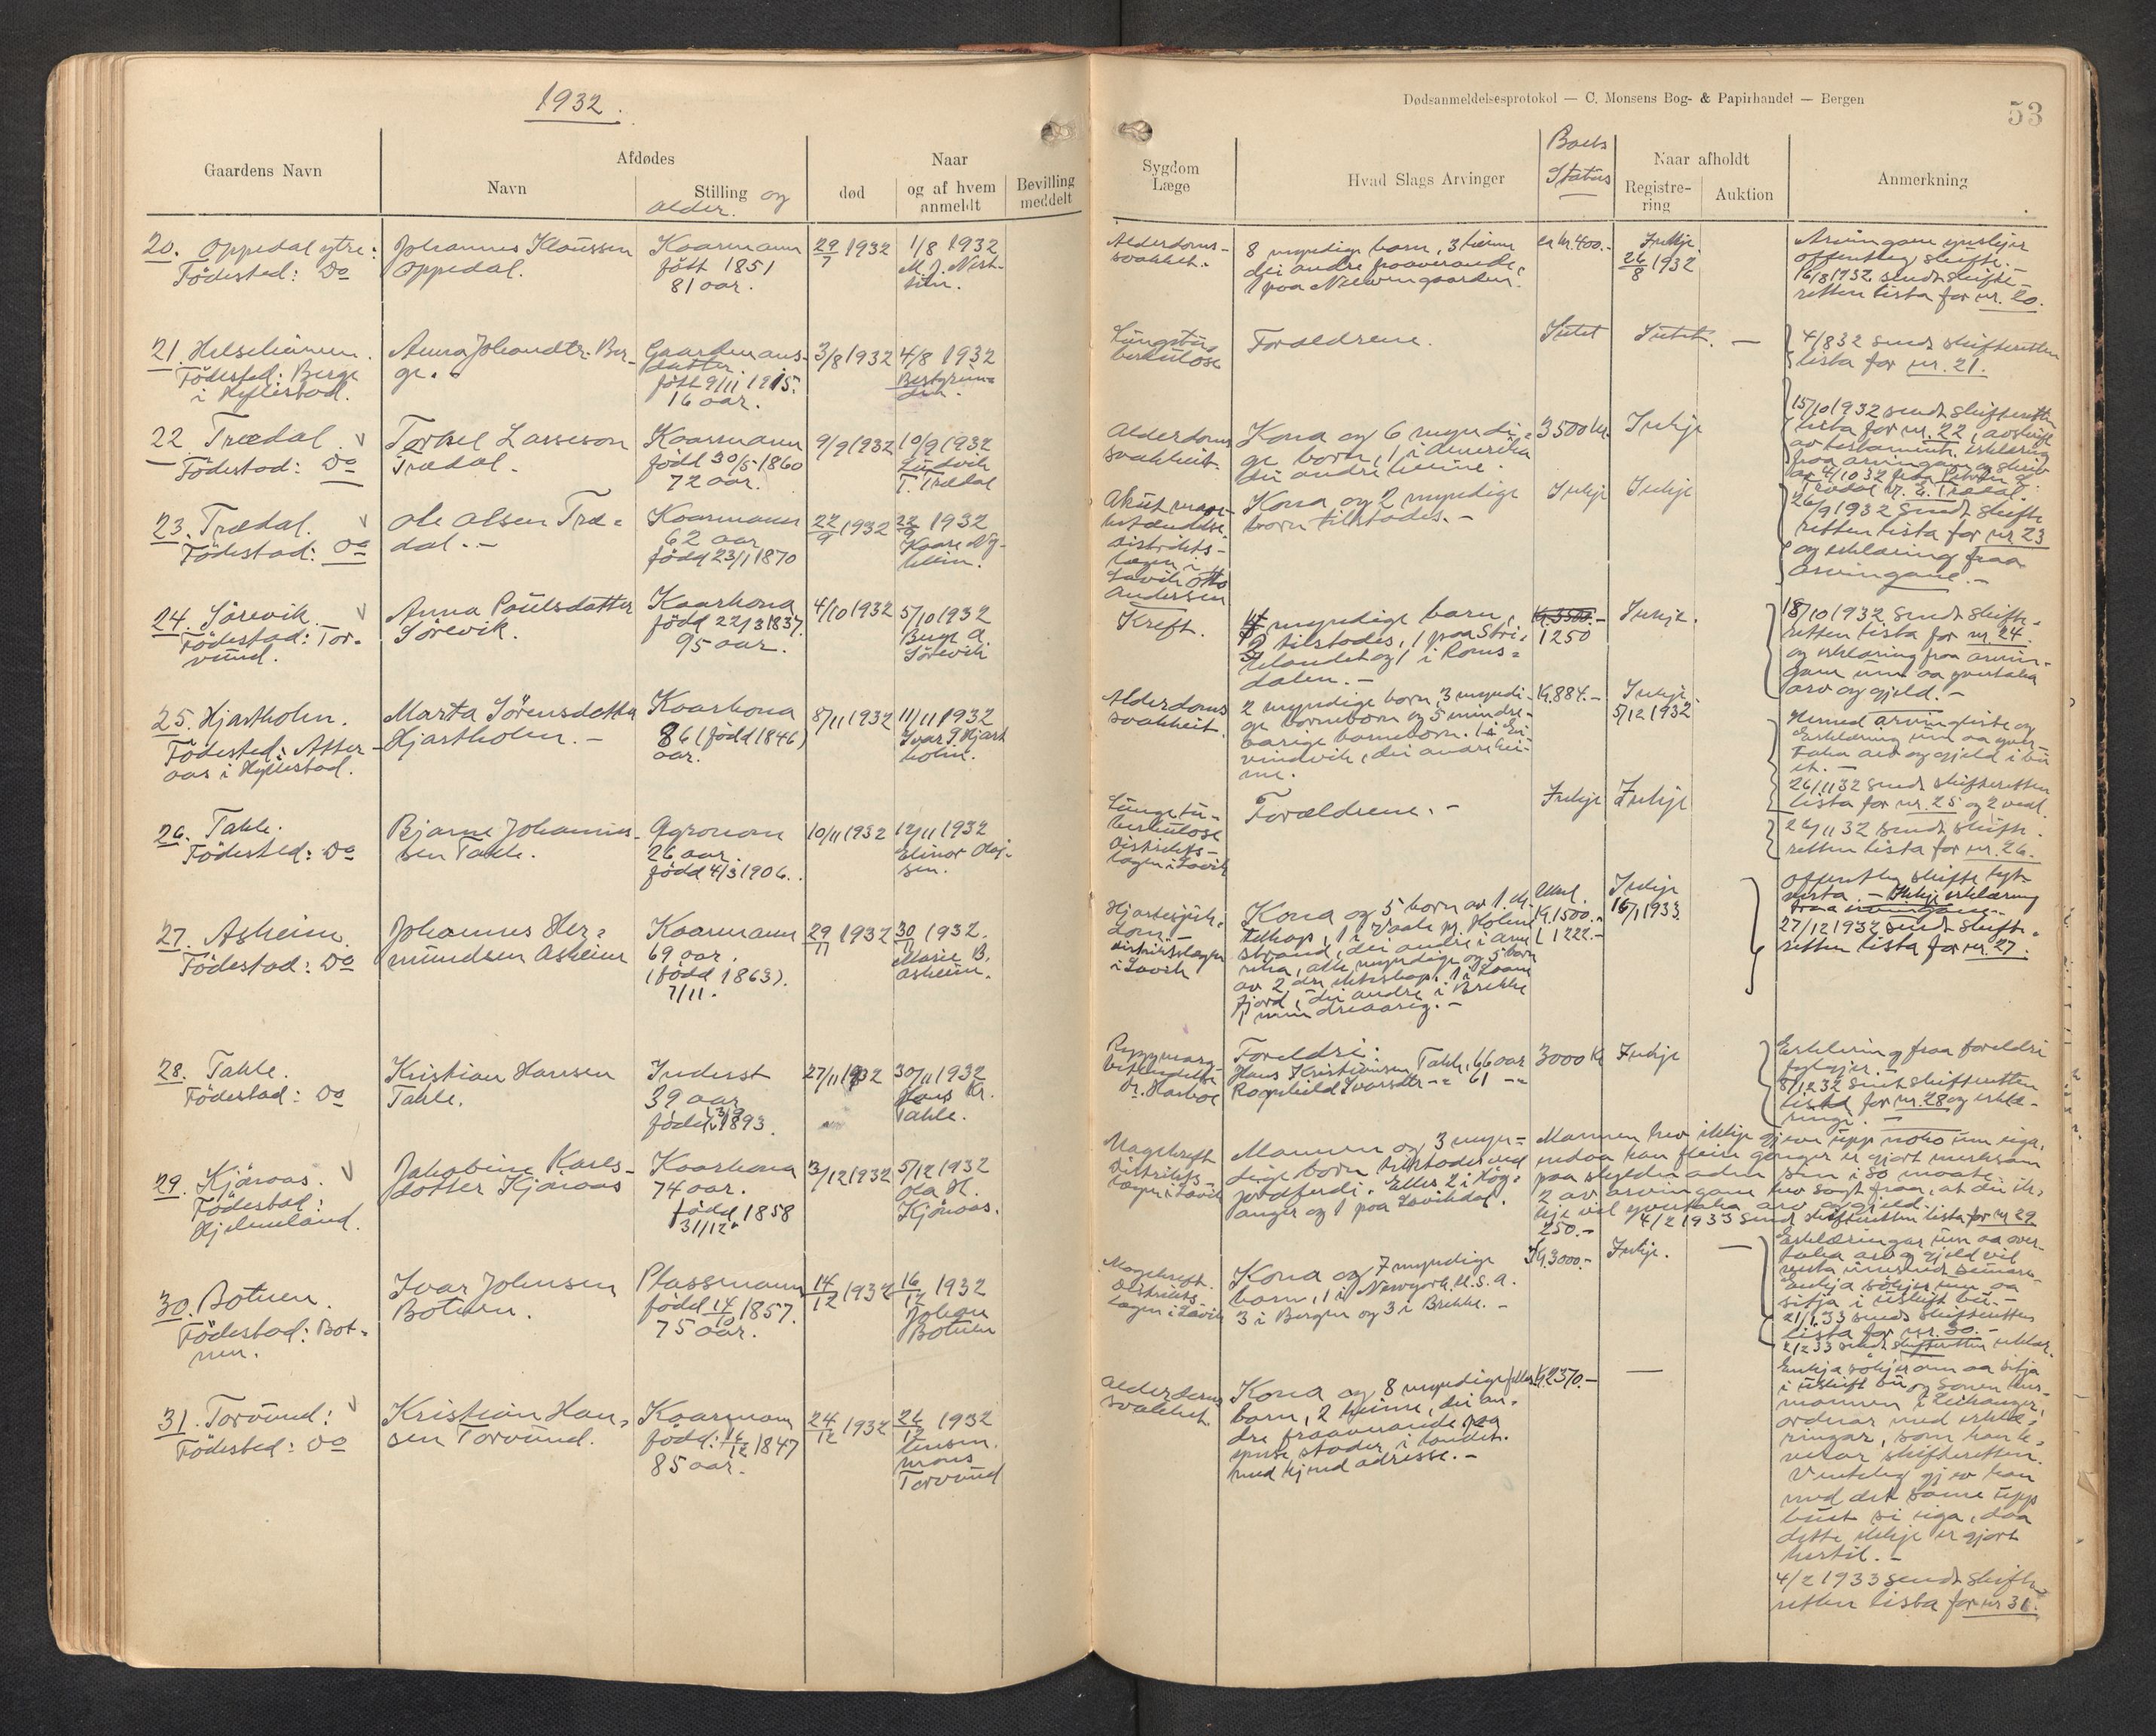 1932.
Dødsanmeldelsesprotokol — C. Monsens Bog- & Papirhandel — Bergen
53
Gaardens Navn
Afdødes
Navn
Stilling og
alder.
Naar
død
og af hvem
anmeldt
Bevilling
meddelt
Sygdom
Læge
Hvad Slags Arvinger
Boets
Status
Naar afholdt
Registre-
ring
Auktion
Anmerkning
20. Oppedal ytre:
Födested: Do
Johannes Klaussen
Oppedal.
Kaarmann
født 1851
81 aar.
29/7 1932
1/8 1932
M. J.
Alderdoms-
svakhet.
8 myndige born, 3 heime
dei andre fraaverande,
1 paa
ca kr. 400.-
Inkje
26/8 1932
Arvingane ynskjer
offentleg skifte.-
16/8 1932 sendt skifte-
retten lista for nr. 20.
21.
Födested: Berge
i Hyllestad.
Anna Johandtr. Ber-
ge.
Gaardmans-
datter.
född 9/11 1915.
16 aar.
3/8 1932
4/8 1932
Lungetu-
berkulose
Foreldrene.
Intet
Intet. —
4/8 32 sendt skifteretten
lista for nr. 21.
22 Trædal
Födestad: Do
Torkel Lasseson
Trædal.
Kaarmann
född 30/5-1860
72 aar.
9/9 1932
10/9 1932
Ludvik
T. Trædal
Alderdoms
svakheit.
Kona og 6 myndi-
ge born, 1 i Amerika
dei andre heime.
3500 kr.
Inkje
15/10 1932 sendt skifteretten
lista for nr. 22, avskrift
av testament, erklæring
fraa arvingane og skriv
av 4/10 32 fraa
Trædal
23. Trædal.
Födestad: Do
Ole Olsen Træ-
dal.-
Kaarmann
62 aar
född 23/1 1870
22/9 1932
22/9 1932
Kaare Ny-
heim.
Akut mage-
betendelse.
Distrikts-
lægen i
Lavik Otto
Andersen
Kona og 2 myndige
born tilstades.-
Inkje
Inkje
26/9 1932 sendt skifte
retten lista for nr 23
og erklæring fraa
arvingane.-
24. Sörevik.
Födestad: Tor-
vund.
Anna Poulsdatter
Sörevik.
Kaarkona
född 22/3 1837.
95 aar.
4/10 1932
5/10 1932
Sörevik
Kreft.
4 myndige born,
2 tilstades, 1 paa Stri-
landet og 1 i Roms-
dalen.-
Kr. 3500.-
1250
Inkje.
18/10 1932 sendt skifte-
retten lista for nr. 24.
og erklæring fraa arvin-
gane um aa yvertaka
arv og gjeld.-
25. Hjartholm.
Födested: Atter-
aas i Hyllestad.
Marta Sörensdotter
Hjartholm.-
Kaarkona
86 (född 1846)
aar.
8/11 1932
11/11 1932
Ivar J Hjart
holm.
Alderdoms
svakheit.
2 myndige born, 3 myndi-
ge borneborn og 5 mindre-
aarige borneborn. 1 i Ei-
vindvik, dei andre hei-
me.
Kr. 884.-
Inkje
5/12 1932
Hermed arvingliste og
Erklæring um aa yver-
taka arv og gjeld i bu
et.-
26/11 32 sendt skifteretten
lista for nr. 25 og 2 vedl.
26. Takle.
Födested: Do
Bjarne Johannes-
sen Takle.
Agronom
26 aar.
född 4/3 1906.
10/11 1932
12/11 1932
Elinor Olaj-
sen.
Lungetu-
berkulose
Distrikts-
lægen i Lavik
Foreldrene.-
Inkje
Inkje
26/11 32 sendt skifte-
retten lista for nr. 26.
27. Asheim.
Födestad: Do
Johannes Her-
mundsen Asheim
Kaarmann
69 aar.
(född 1863).
7/11.
29/11 1932
30/11 1932.
Marie B.
Asheim.
Hjartesjuk-
dom.-
Distriktslægen
i Lavik
Kona og 5 born av 1. ek-
teskap, 1 i Vaale pr. Holme
strand, dei andre i Ame
rika, alle myndige og 5 born
av 2 dre ekteskap, 1 i
fjord, dei andre i Brekke
1 mindreaarig.-
Kr. 1500.-
1222.-
Inkje
16/1 1933
Offentleg skifte lyt
vera. - Inkje erklæring
fraa arvingane.
27/12 1932 sendt skifte-
retten lista for nr. 27.
28. Takle.
Födestad: Do
Kristian Hansen
Takle.
Inderst
39 aar
född 1893.
27/11 1932
30/11 1932
Hans Kr.
Takle.
Ryggmarg
betendelse
Dr. Harboe
Foreldri:
Hans Kristiansen Takle, 66 aar
Ragnhild Ivarsdtr -"- 61 -"-
3000 Kr
Inkje
Erklering fraa foreldri
fylgjer.-
8/12 32 sendt skifteretten
lista for nr. 28 og erklæ-
ringi.-
29. Kjöraas.
Födestad:
Hjelmeland.
Jakobine Karls-
dotter Kjöraas
Kaarkona
74 aar.
född 1858
31/12.
3/12 1932
5/12 1932
Ola H.
Kjöraas.
Magekreft
Distrikts-
lægen i Lavik
Mannen og 3 myn-
dige born tilstades ved
jordferdi. Elles 2 i Höy-
anger og 1 paa Lavikdal.
Mannen hev ikkje gjeve upp noko um eiga,
endaa han fleire gonger er gjort merksam
paa skyldnaden sin i so maate.
2 av arvingane hev sagt fraa, at dei ik-
kje vil yvertaka arv og gjeld.
250.-
4/2 1933 sendt skifteretten lista for nr 29
30. Botnen.
Födestad: Bot-
nen.
Ivar Johnsen
Botnen.
Plassmann
född 14/10 1857.
75 aar.
14/12 1932
16/12 1932
Johan
Botnen
Magekreft.
Distrikts
lægen i Lavik
Kona og 7 myndige
born, 1 i Newyork U.S.A.
3 i Bergen og 3 i Brekke.-
Kr. 3000.-
Inkje. —
Erklæringar um aa over-
taka arv og gjeld vil
verta innsendt seinare.
Enkja sökjer um aa
sitja i uskift bu.-
21/1 33 sendt skifteretten
lista for nr. 30.-
2/2 33 sendt skifteretten erklær.
31. Torvund:
Födested: Do
Kristian Han-
sen Torvund.
Kaarmann
född: 16/12 1847
85 aar.
24/12 1932
26/12 1932
lensm.
Mons
Torvund
Alderdoms
svakhet.
Kona og 8 myndige felles
born, 2 heime, dei an-
dre fraaverande paa
ymse stader i landet.
med kjend adresse.-
Kr. 2370.-
—
Enkja sökjer om aa sitja
i uskift bu og sonen lens-
mannen i Leikanger,
ordnar med erklæ-
ringar, som han le-
verar skifteretten.
Venteleg gjev han
med det same upp
buet si eiga, daa
dette ikkje er gjort
hertil.-
4/2 1933 sendt skifte
retten lista for nr 31.